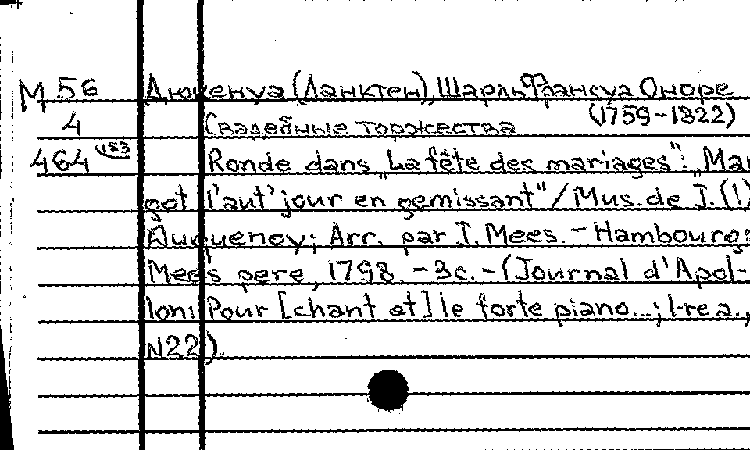 М 56 Дюкенуа (Ланктен), Шарль Франсуа Оноре
4 Свадебные торжества (1759-1822)
464 183 Ronde dans „La fête des mariages": „Mar
got l'aut'jour en gemissant"/ Mus. de J.(!)
Duquenoy; Arr. par J. Mees. - Hambourg:
Mees pere, 1798. - 3c. - (Journal d'Apol-
lon: Pour [chant et] le forte piano...; 1-re a.,
N22).